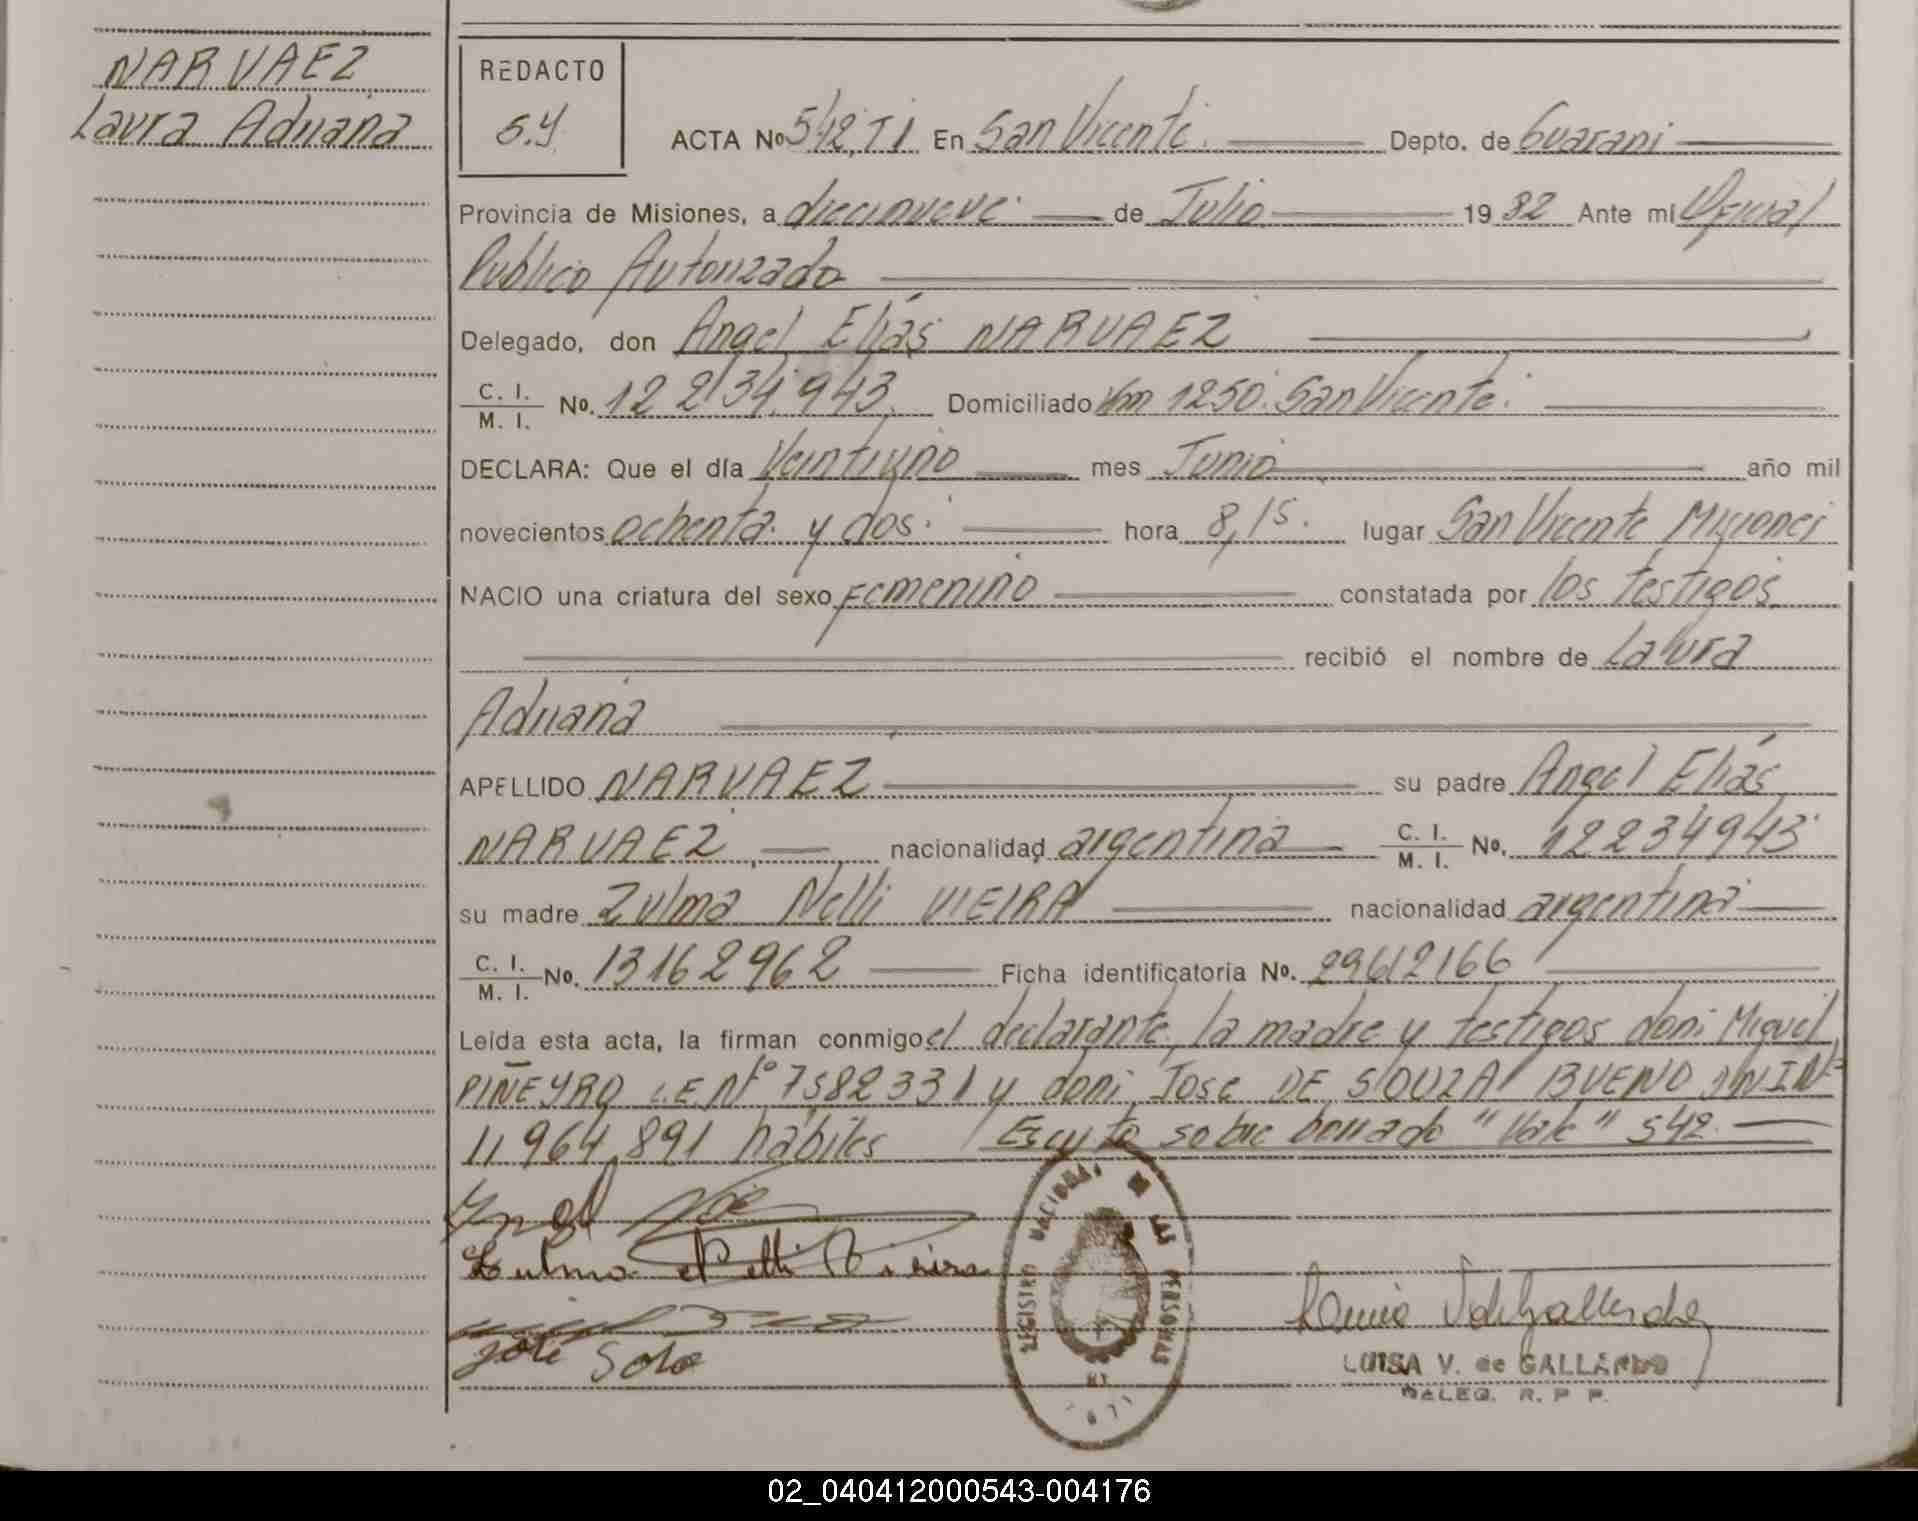 NARVAEZ
Laura Adriana
REDACTO
S.Y.
ACTA Nº 542, T I En San Vicente. Depto. de Guarani
Provincia de Misiones, a diecinueve de Julio 19 82 Ante mí Oficial
Publico Autorizado
Delegado, don Angel Elías NARVAEZ
C. I.
M. I.
No. 12 234 943 Domiciliado Km 1250. San Vicente.
DECLARA: Que el día Veintiuno mes Junio año mil
novecientos ochenta y dos. hora 8,15. lugar San Vicente Misiones
NACIO una criatura del sexo Femenino constatada por los testigos
recibió el nombre de Laura
Adriana
APELLIDO NARVAEZ su padre Angel Elías
NARVAEZ, nacionalidad argentina C. I. M. I. No. 12234943
su madre Zulma Nelli VIEIRA nacionalidad argentina
C. I. M. I. No. 13162962 Ficha identificatoria No. 29612166
Leída esta acta, la firman conmigo el declarante, la madre y testigos don: Miguel
PIÑEYRO L.E. Nº 7582331 y don: Jose DE SOUZA BUENO DNI Nº
11 964 891 habiles Escrito sobre borrado "Vale" 542.
Zulma Nelli Vieira
José
REGISTRO NACIONAL DE LAS PERSONAS
LUISA V. de GALLARDO
DELEG. R. P. P.
02_040412000543-004176